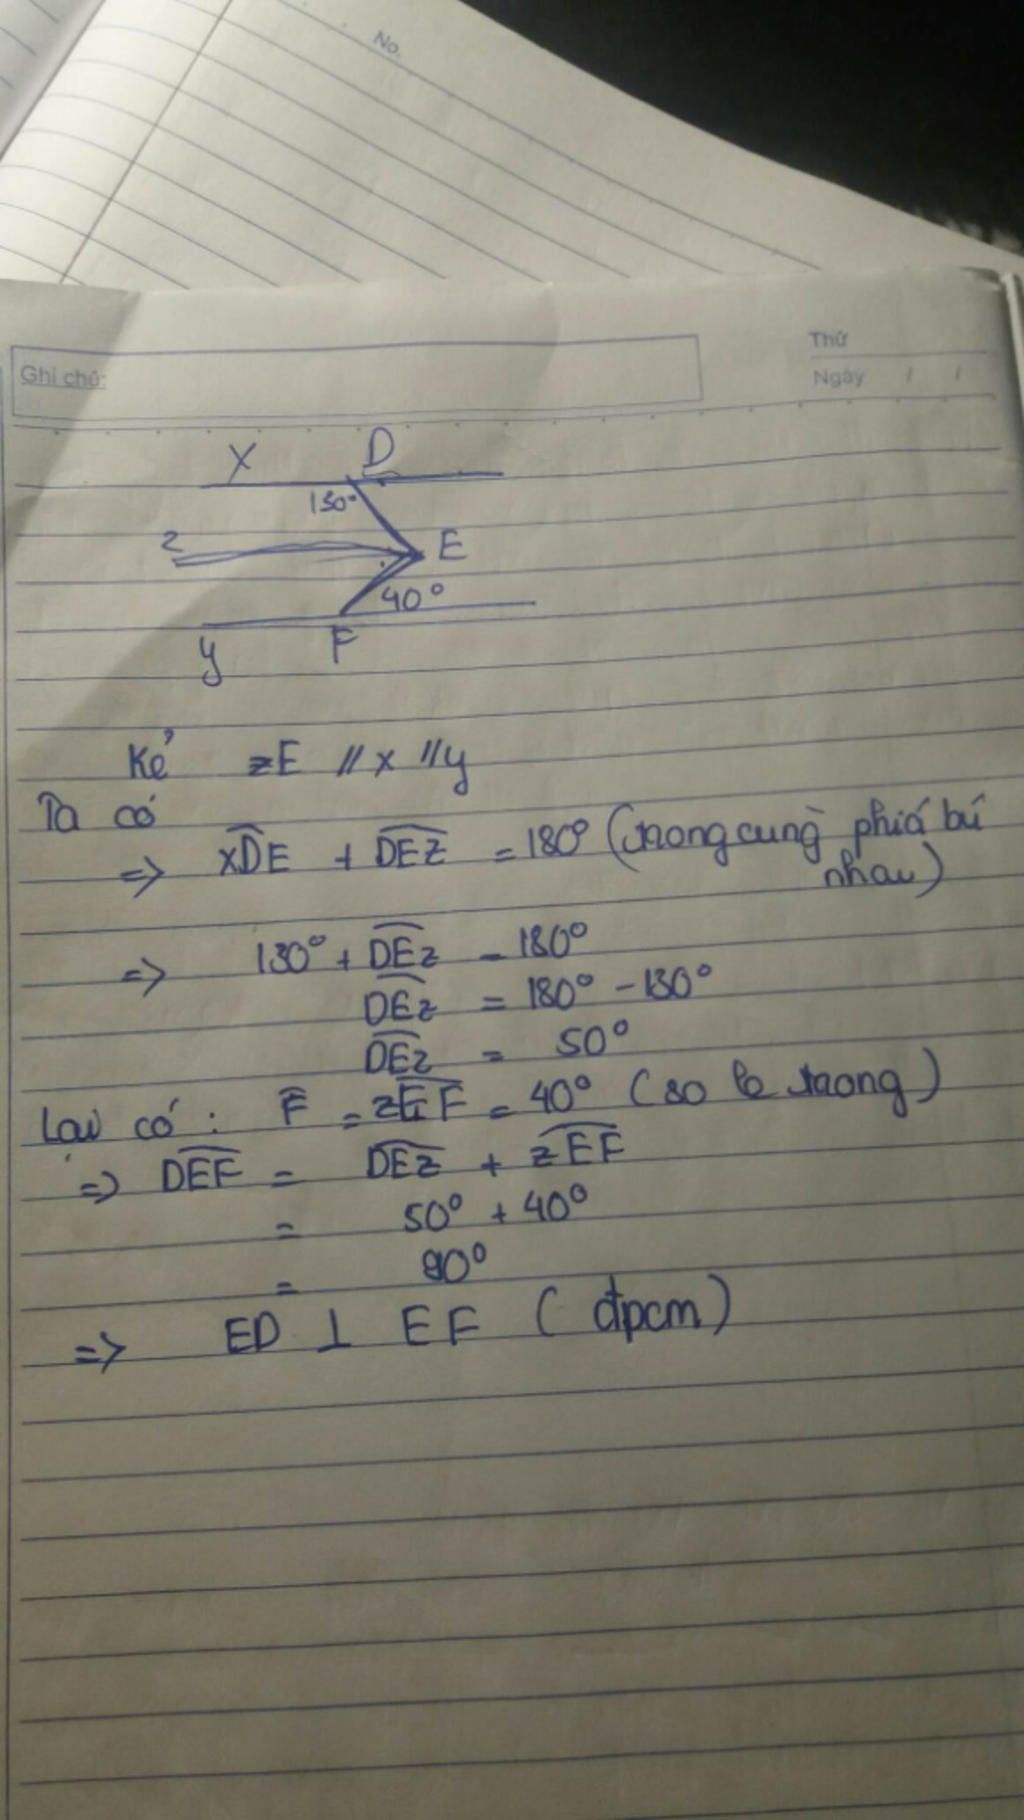 No.
Thứ
Ghi chú:
Ngày / /
X D
130°
z E
40°
y F
Kẻ zE // x // y
Ta có
=> xDE + DEZ = 180° (trong cùng phía bù
nhau)
=> 130° + DEz = 180°
DEz = 180° - 130°
DEz = 50°
Lại có : F = zEF = 40° (so le trong)
=> DEF = DEz + zEF
= 50° + 40°
= 90°
=> ED ⊥ EF (đpcm)